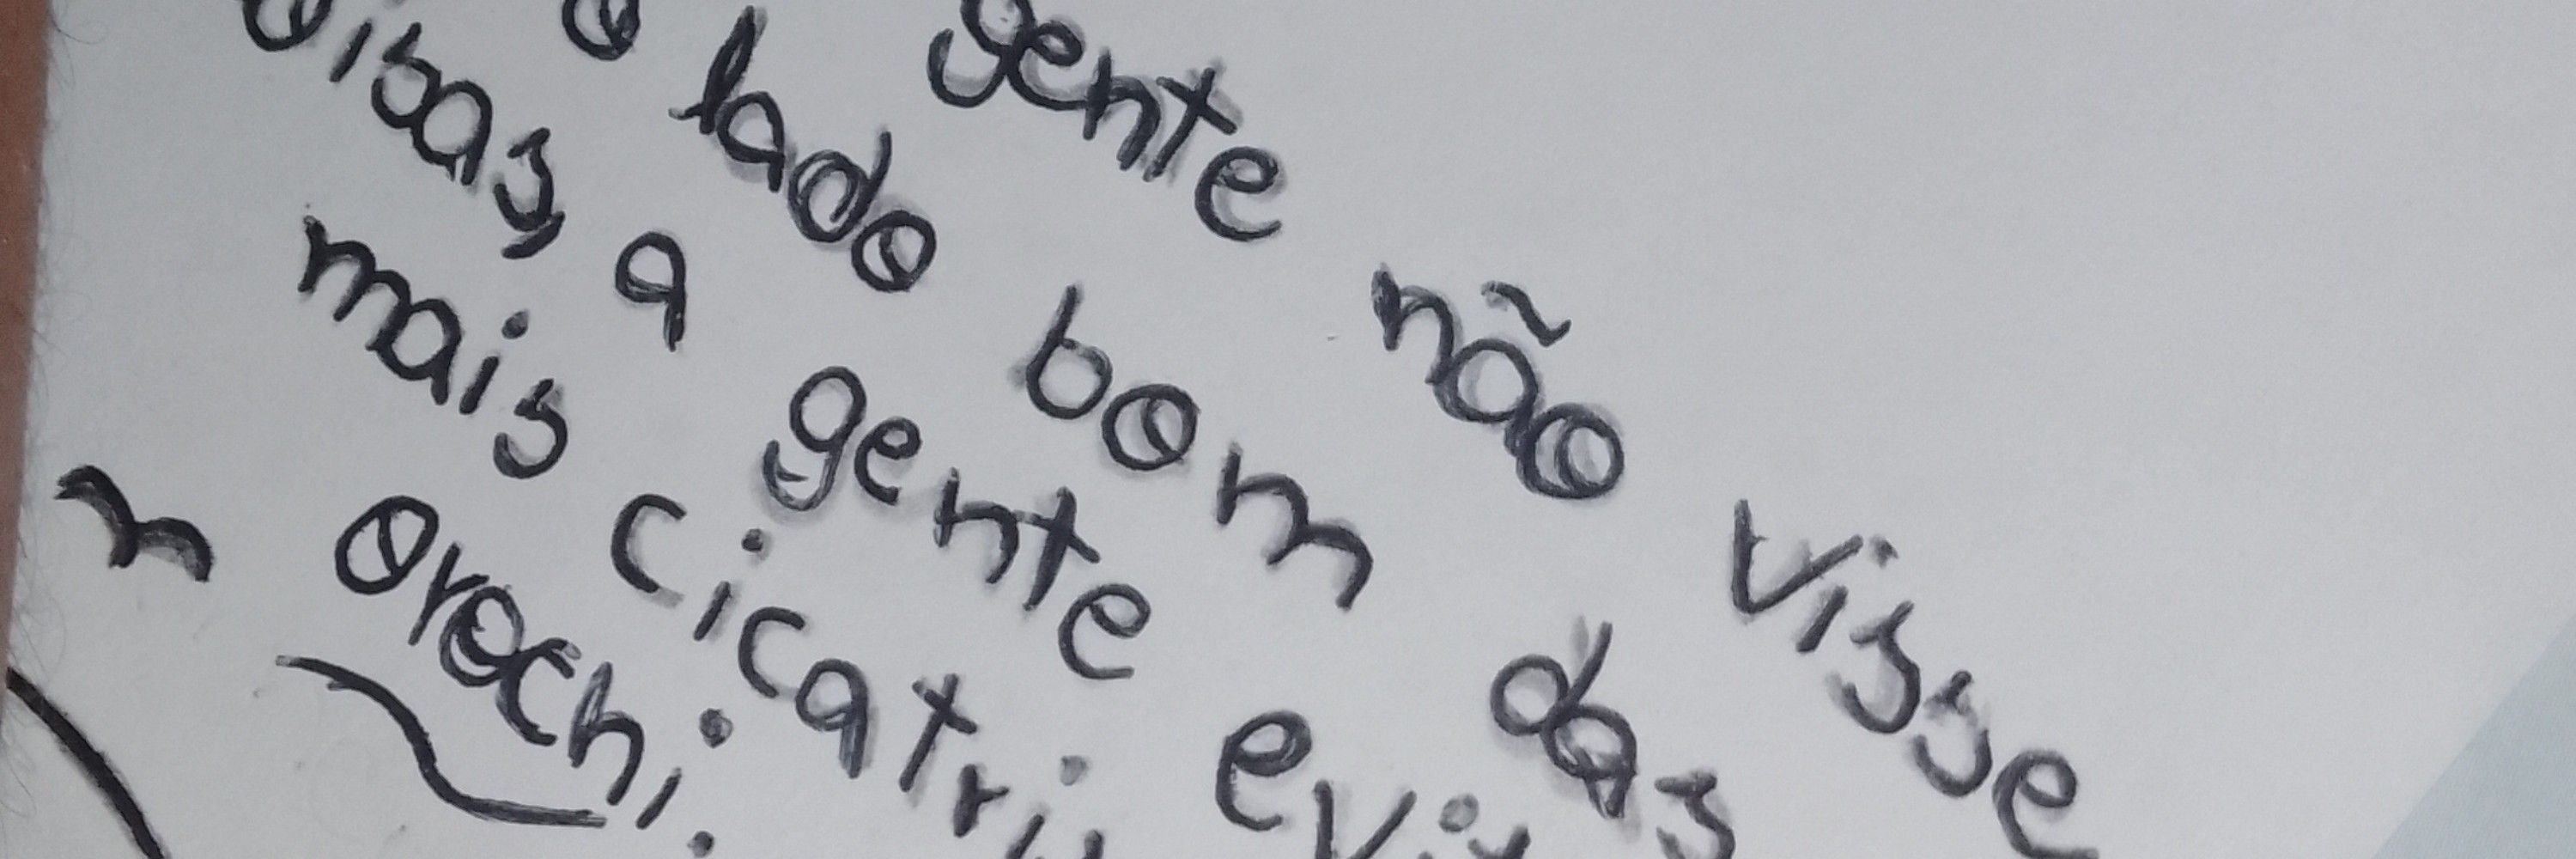 gente não visse
o lado bom das
oisas, a gente evit
mais cicatri
~ Orochi.